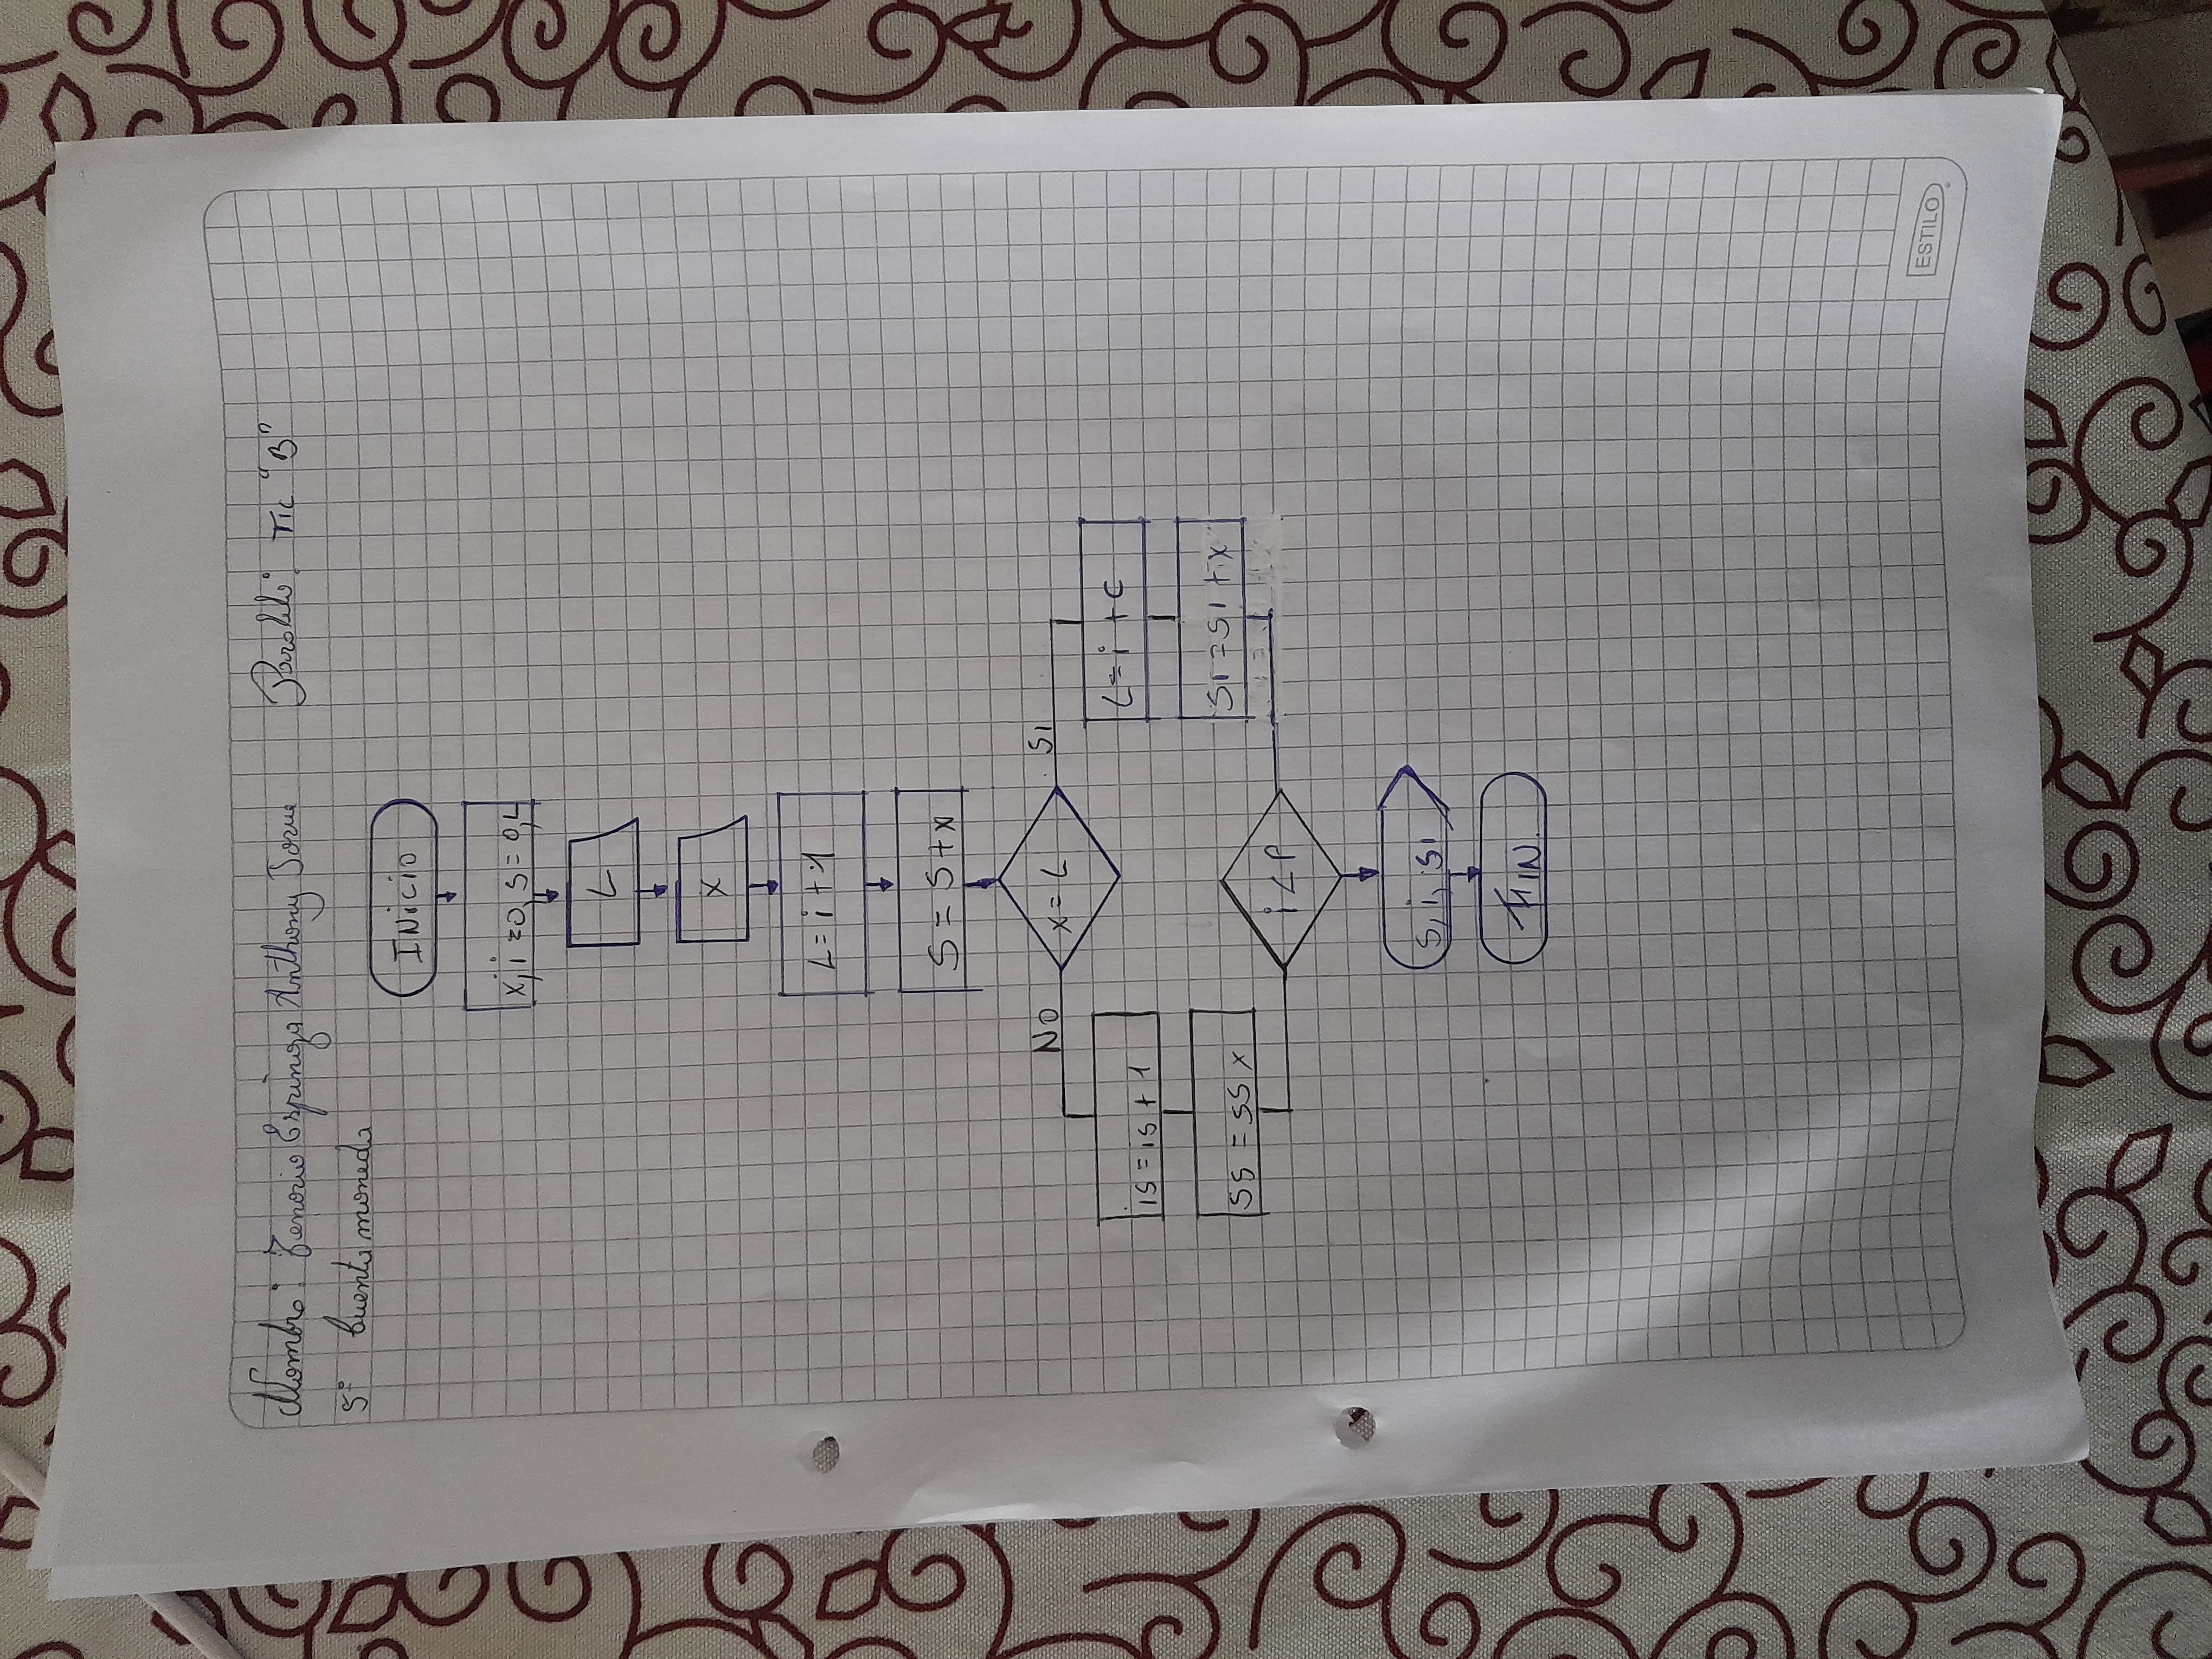 Nombre: Tenorio Espinoza Anthony Josue Paralelo: Tic "B"
5: Cuenta moneda
INicio
x, i=0, s=0, L
L
x
L=i+1
S=S+x
NO x=L SI
is=is+1 L=i+c
ss=ss x si=si+x
i<P
s, i, si
FIN.
ESTILO